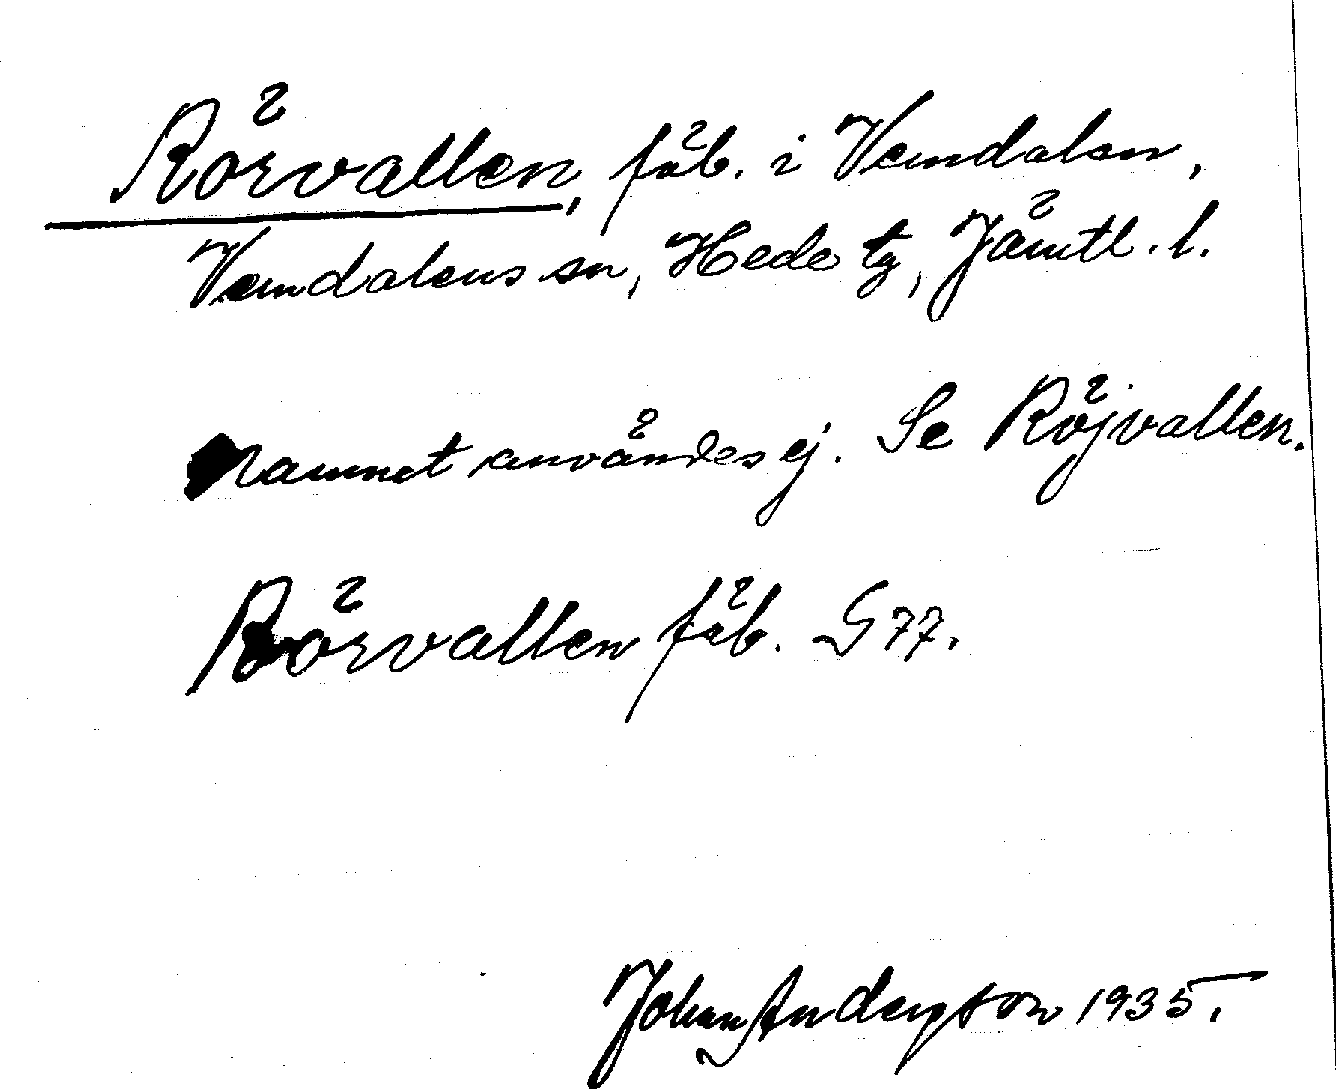 Rörvallen, fäb. i Vemdalen,
Vemdalens sn, Hede tg, Jämtl. l.
namnet användes ej. Se Röjvallen.
Rörvallen fäb. G 77.
Johan Andersson 1935.